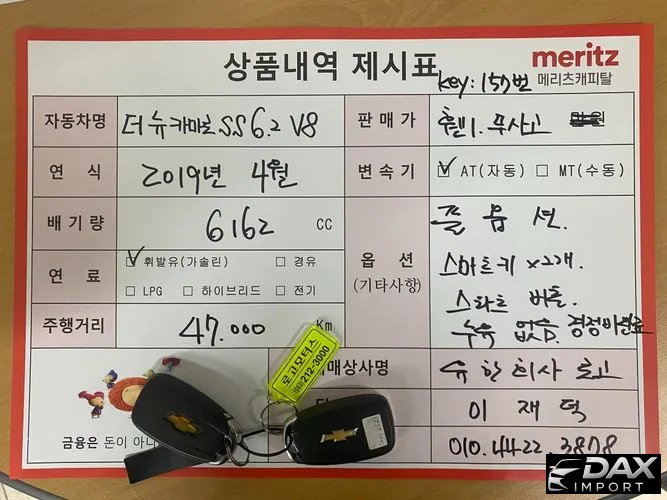 상품내역 제시표
meritz
메리츠캐피탈
key: 157번
자동차명 더 뉴 카마로 SS 6.2 V8
판매가 무사고
연식 2019년 4월
변속기 ☑ AT(자동) □ MT(수동)
배기량 6162 CC
연료 ☑ 휘발유(가솔린) □ 경유
□ LPG □ 하이브리드 □ 전기
옵션
(기타사항)
풀 옵션.
스마트키 x2개.
스타트 버튼.
누유 없음. 경정비완료
주행거리 47.000 Km
로고모터스
212-3000
매상사명 유한회사 로고
이재덕
010.4422.3808
금융은 돈이 아니
DAX
IMPORT